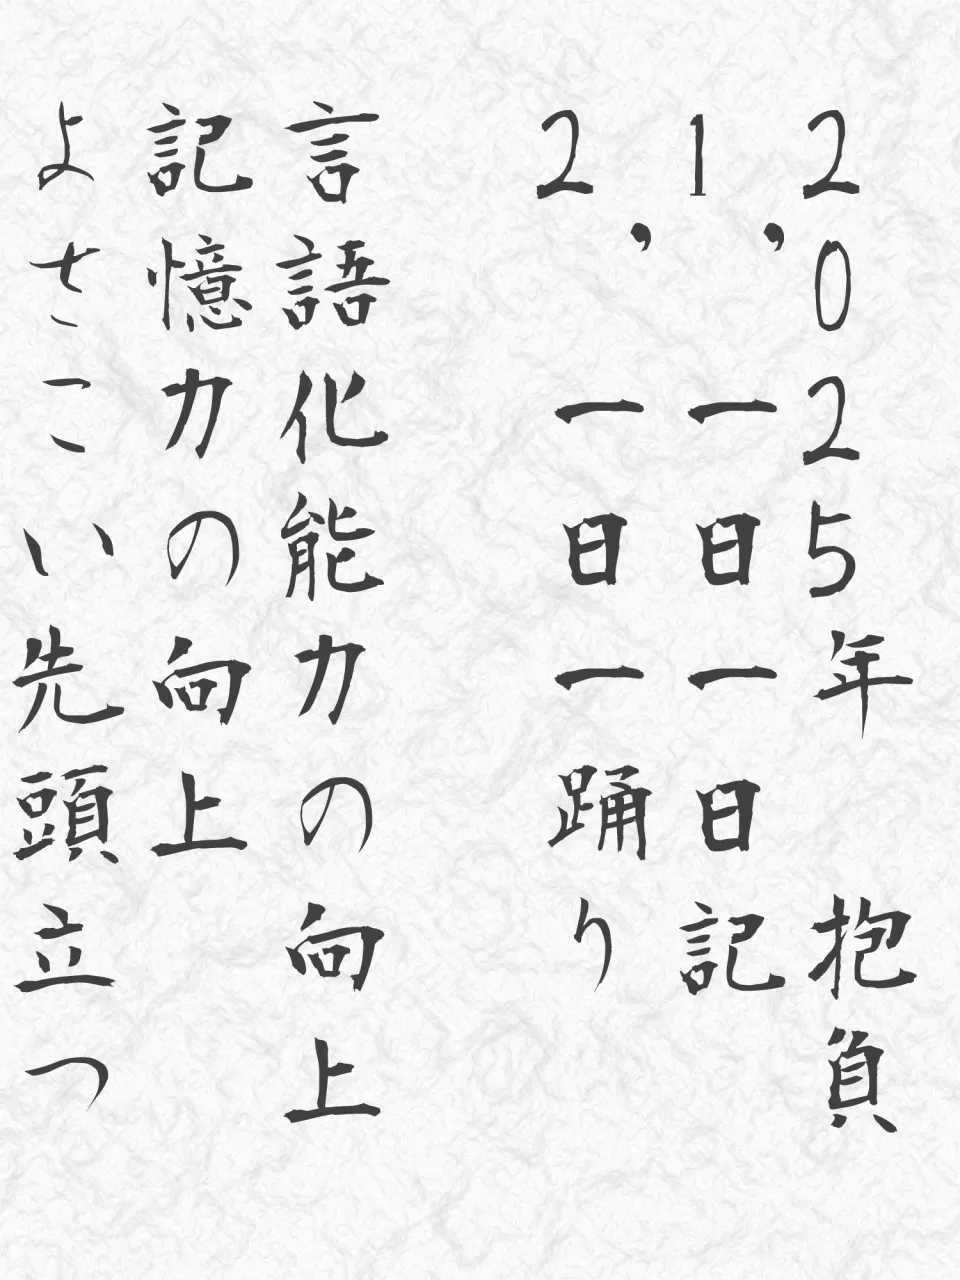 2025年　抱負
1,　一日一日記
2,　一日一踊り
言語化能力の向上
記憶力の向上
よさこい先頭立つ